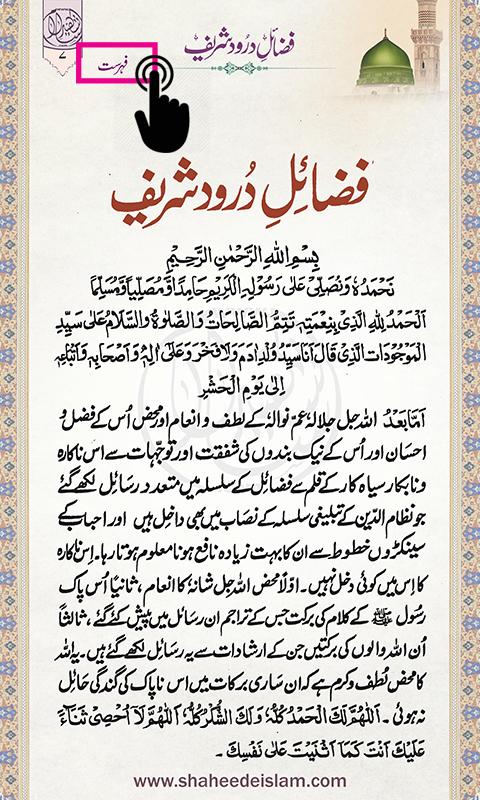 فضائلِ درود شریف
فہرست
۷
فضائلِ درود شریف
بِسْمِ اللهِ الرَّحْمٰنِ الرَّحِيْمِ
نَحْمَدُهٗ وَنُصَلِّيْ عَلٰى رَسُوْلِهِ الْكَرِيْمِ حَامِدًا وَّمُصَلِّيًا وَّمُسَلِّمًا
اَلْحَمْدُ لِلّٰهِ الَّذِيْ بِنِعْمَتِهٖ تَتِمُّ الصَّالِحَاتُ وَالصَّلٰوةُ وَالسَّلَامُ عَلٰى سَيِّدِ
الْمَوْجُوْدَاتِ الَّذِيْ قَالَ اَنَا سَيِّدُ وُلْدِ اٰدَمَ وَلَا فَخْرَ وَعَلٰى اٰلِهٖ وَاَصْحَابِهٖ وَاَتْبَاعِهٖ
اِلٰى يَوْمِ الْحَشْرِ
اَمَّا بَعْدُ اللہ جل جلالہٗ عمّ نوالہٗ کے لطف و انعام اور محض اُس کے فضل و
احسان اور اُس کے نیک بندوں کی شفقت اور توجّہات سے اس ناکارہ
و نابکار سیاہ کار کے قلم سے فضائل کے سلسلہ میں متعدد رسائل لکھے گئے
جو نظام الدّین کے تبلیغی سلسلہ کے نصاب میں بھی داخل ہیں اور احباب کے
سینکڑوں خطوط سے ان کا بہت زیادہ نافع ہونا معلوم ہوتا رہا۔ اِس ناکارہ
کا اِس میں کوئی دخل نہیں۔ اوّلاً محض اللہ جل شانہٗ کا انعام ، ثانیاً اُس پاک
رسُول ﷺ کے کلام کی برکت جس کے تراجم ان رسائل میں پیش کئے گئے، ثالثاً
اُن اللہ والوں کی برکتیں جن کے ارشادات سے یہ رسائل لکھے گئے ہیں۔ یہ اللہ
کا محض لُطف و کرم ہے کہ ان سَاری برکات میں اس ناپاک کی گندگی حَائِل
نہ ہوئی۔ اَللّٰهُمَّ لَكَ الْحَمْدُ كُلُّهٗ وَلَكَ الشُّكْرُ كُلُّهٗ، اَللّٰهُمَّ لَآ اُحْصِيْ ثَنَآءً
عَلَيْكَ اَنْتَ كَمَا اَثْنَيْتَ عَلٰى نَفْسِكَ۔
www.shaheedeislam.com